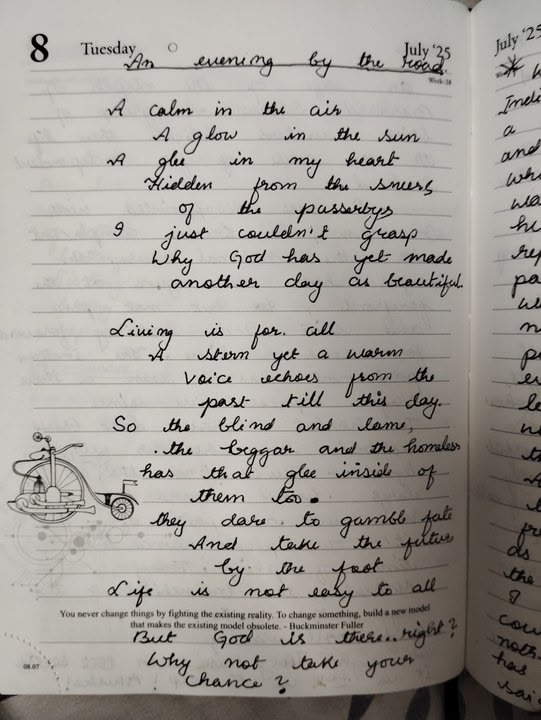 8 Tuesday July '25
An evening by the road
Week-28
A calm in the air
A glow in the sun
A glee in my heart
Hidden from the sneers
of the passerbys
I just couldn't grasp
Why God has yet made
another day as beautiful.
Living is for. all
A stern yet a warm
Voice echoes from the
past till this day.
So the blind and lame,
. the beggar and the homeless
has that glee inside of
them too.
they dare to gamble fate
And take the future
by the foot
Life is not easy to all
You never change things by fighting the existing reality. To change something, build a new model
that makes the existing model obsolete. - Buckminster Fuller
But God is there..right?
08.07
Why not take your
chance?
July '25
Indi
a
and